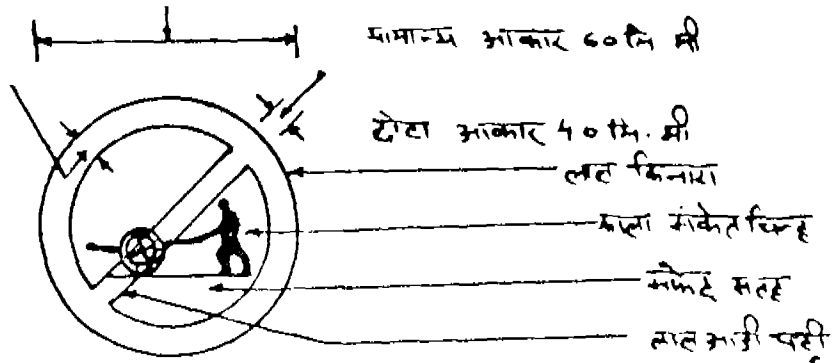 सामान्य आकार 60 मि मी
छोटा आकार 40 मि. मी
लाल किनारा
काला संकेत चिन्ह
सफेद सतह
लाल आडी पट्टी